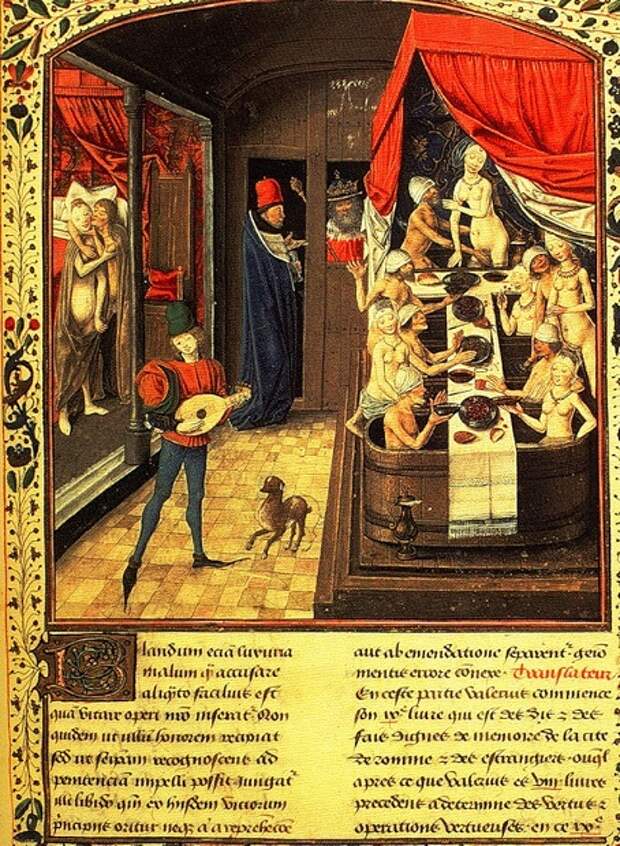 Blandum eciã luxuria
malum q̃ accusare
aliq̃to facilius est
quã vitare operi nr̃o inserat᷑ Non
quidem ut ullũ honorem recipiat
sed ut seipam recognoscens ad
penitenciam impelli possit Jungat᷑
illi libido qm̃ ex hijsdem viciorum
principijs oritur neq̃ a a reprehẽcõe
aut ab emendatione separent᷑ gemĩo
mentis errore connexe. Translateur
En ceste partie Valerius commence
son ixe. livre qui est des dis ⁊ des
fais dignes de memoire de la cite
de romme ⁊ des estrangiers. ouql
apres ce que valerius es viij livres
precedens a determine des vertus ⁊
operations vertueuses. en ce ixe.